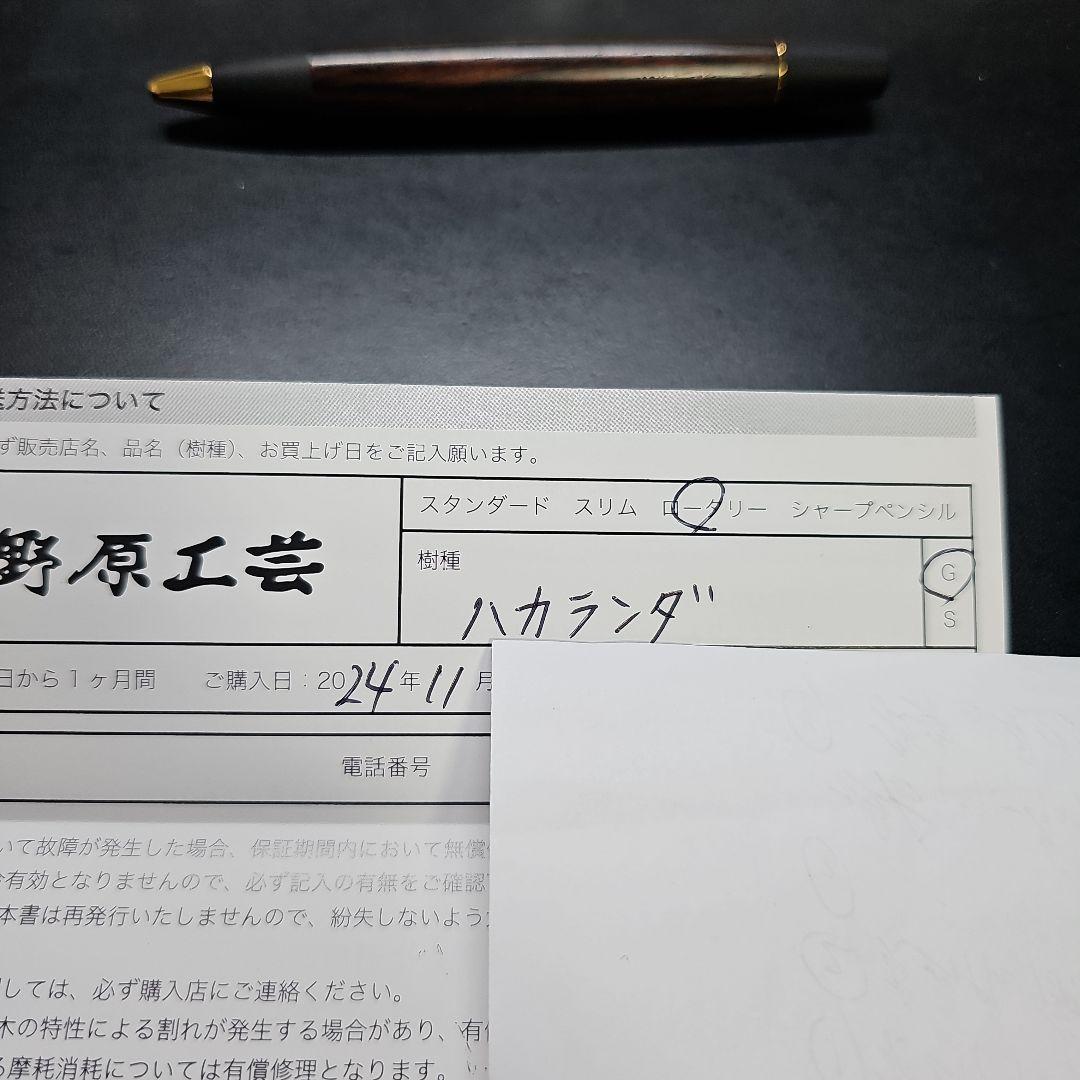 方法について
ず販売店名、品名（樹種）、お買上げ日をご記入願います。
スタンダード スリム ロータリー シャープペンシル
野原工芸
樹種
ハカランダ
G
S
日から１ヶ月間 ご購入日：2024年11月
電話番号
いて故障が発生した場合、保証期間内において無償
有効となりませんので、必ず記入の有無をご確認
本書は再発行いたしませんので、紛失しないよう
しては、必ず購入店にご連絡ください。
木の特性による割れが発生する場合があり、有
る摩耗消耗については有償修理となります。